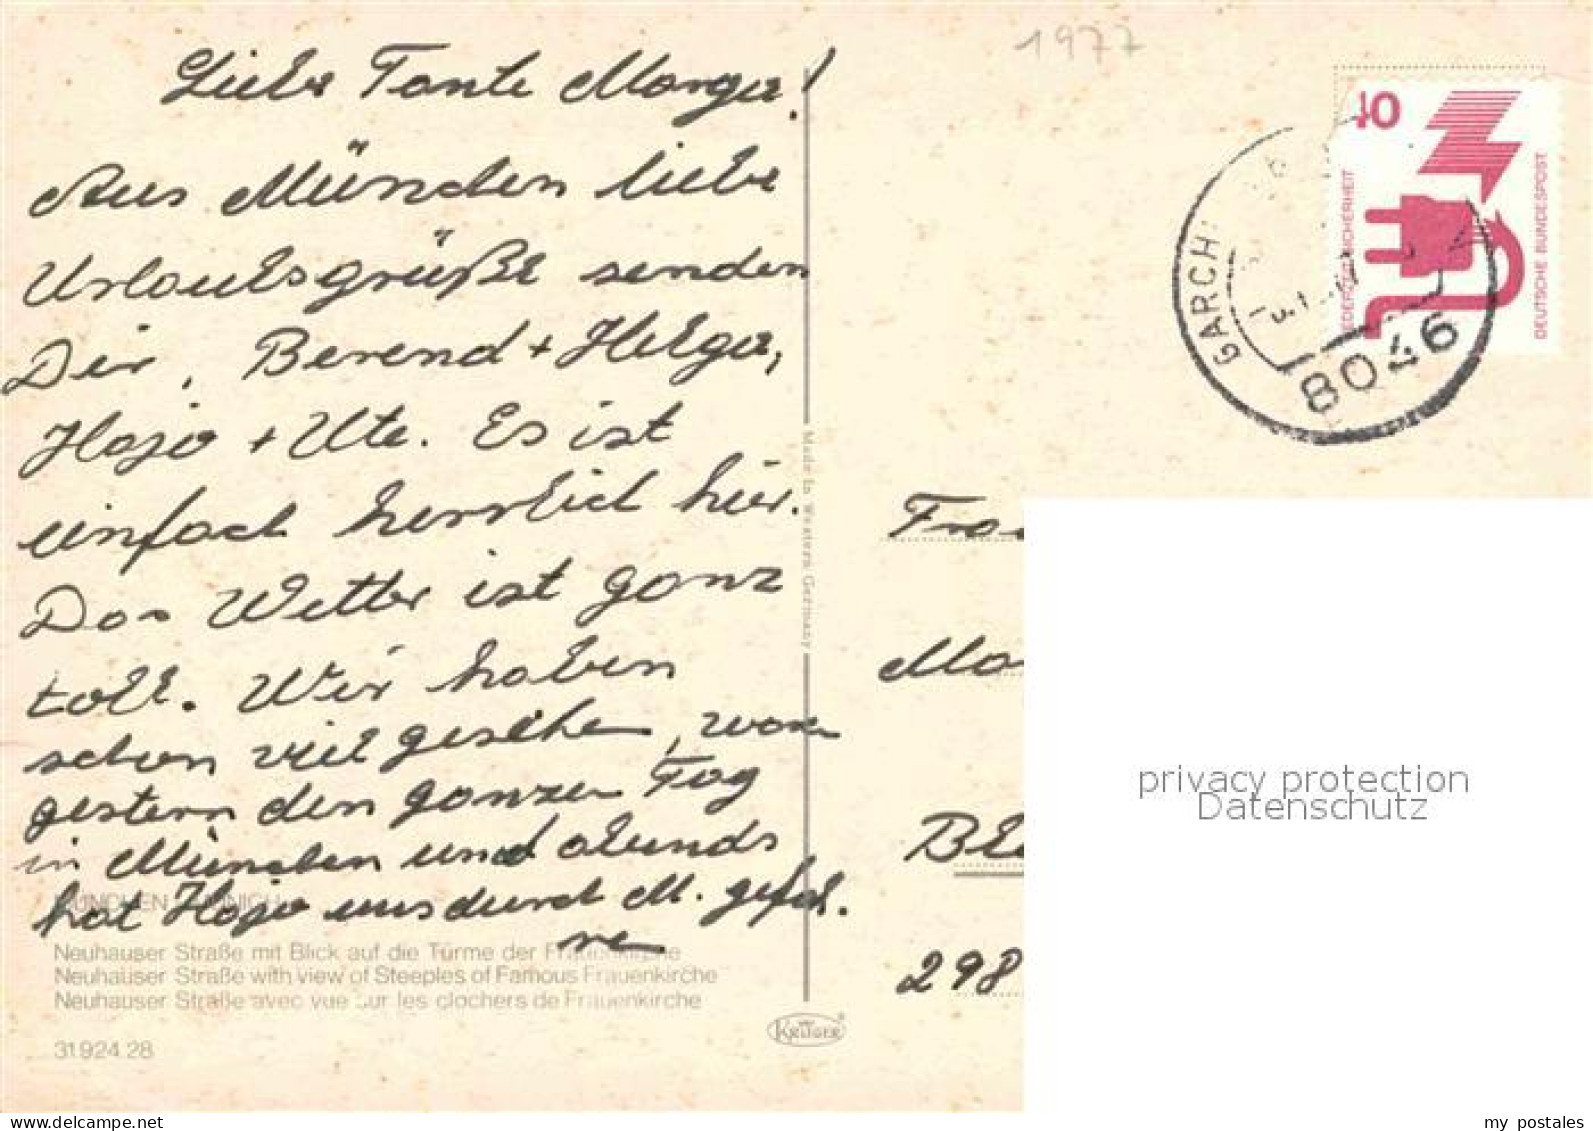 1977
Liebe Tante Marga!
Aus München liebe
Urlaubsgrüße senden
Dir, Berend + Helga,
Hajo + Ute. Es ist
einfach herrlich hier.
Das Wetter ist ganz
toll. Wir haben
schon viel gesehen, waren
gestern den ganzen Tag
in München und abends
hat Hajo uns durch M. gefah.
ren
MÜNCHEN
Neuhauser Straße mit Blick auf die Türme der Frauenkirche
Neuhauser Straße with view of Steeples of Famous Frauenkirche
Neuhauser Straße avec vue sur les clochers de Frauenkirche
31.924.28
Made in Western Germany
KRÜGER
40
JEDERZEIT SICHERHEIT
DEUTSCHE BUNDESPOST
GARCH
8046
Frau
Ma
Ble
298
privacy protection
Datenschutz
www.delcampe.net
my_postales